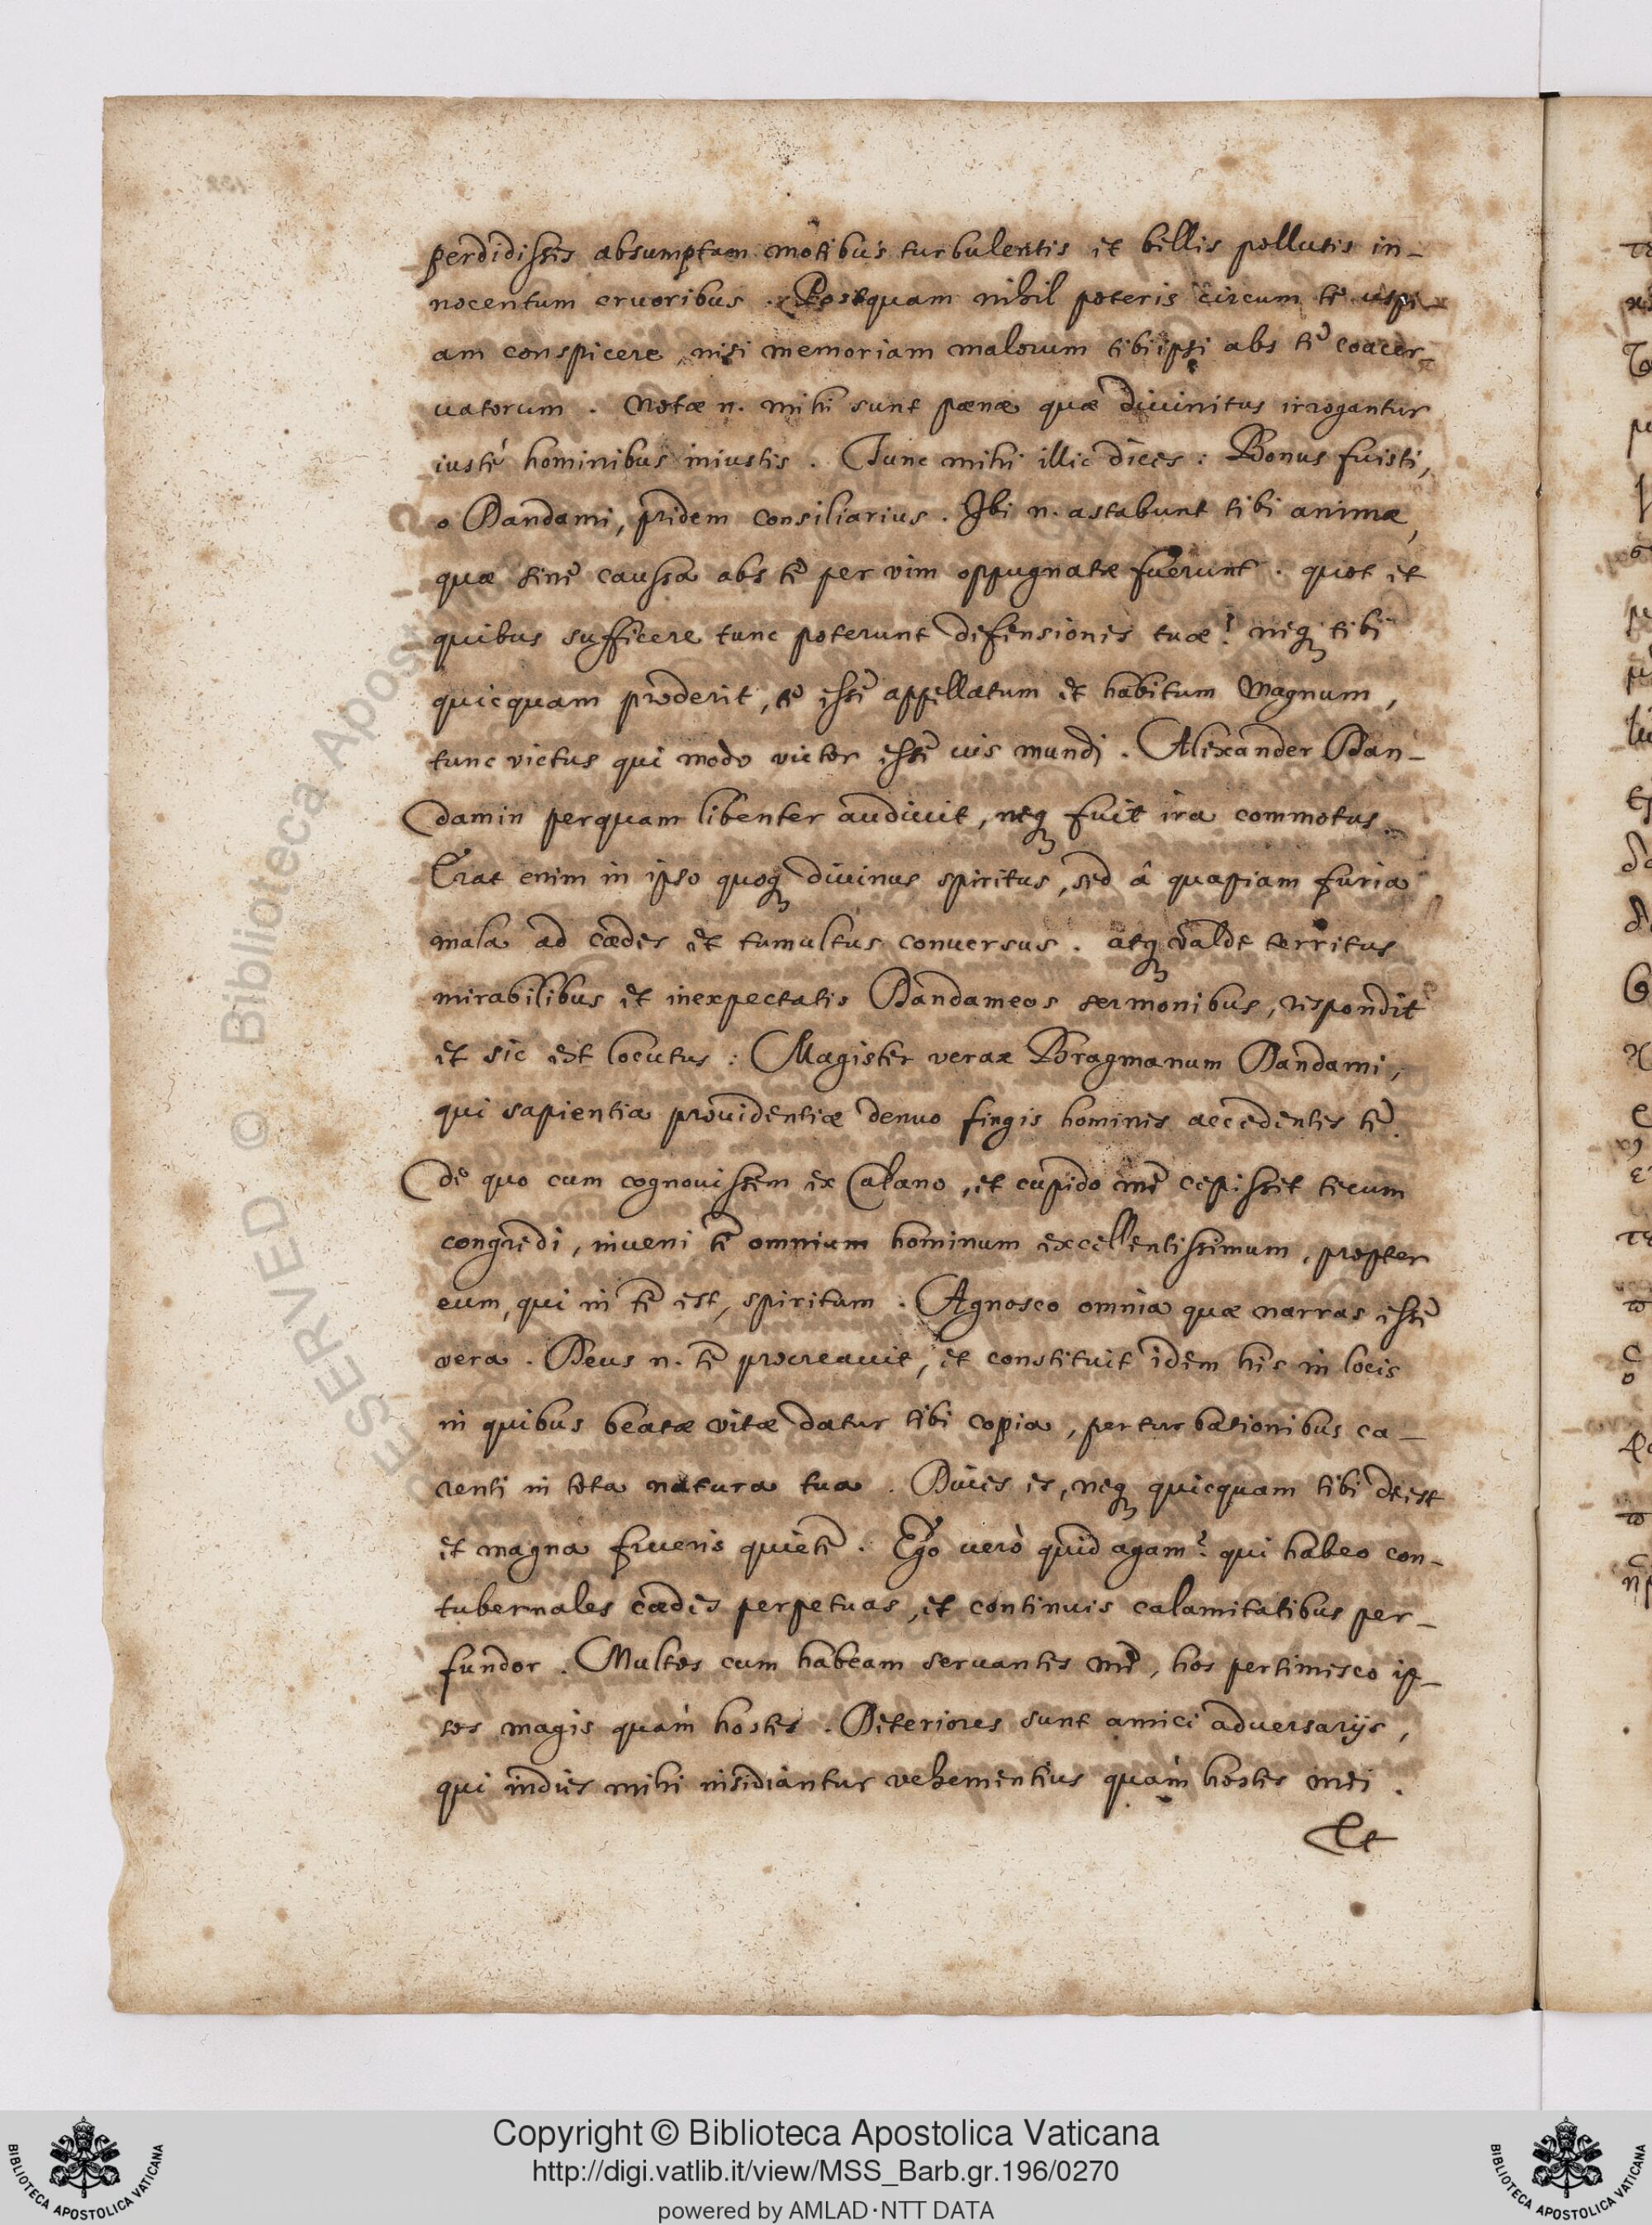 perdidisses absumptam motibus turbulentis et bellis pollutis in-
nocentum cruoribus. Postquam nihil poteris circum te uspi-
am conspicere nisi memoriam malorum tibi ipsi abs te coacer-
uatorum. Notæ n. mihi sunt pænæ quæ diuinitus irrogantur
iustè hominibus iniustis. Tunc mihi illic dices: Bonus fuisti,
o Dandami, pridem consiliarius. Ibi n. astabunt tibi animæ,
quæ sine caussa abs te per vim oppugnatæ fuerunt. quot et
quibus sufficere tunc poterunt defensiones tuæ? neq; tibi
quicquam proderit, te esse appellatum et habitum Magnum,
tunc victus qui modo victor esse uis mundi. Alexander Dan-
damin perquam libenter audiuit, neq; fuit ira commotus.
Erat enim in ipso quoq; diuinus spiritus, sed â quapiam furia
mala ad cædes et tumultus conuersus. atq; valde territus
mirabilibus et inexpectatis Dandameos sermonibus, respondit
et sic est locutus: Magister veræ Bragmanum Dandami,
qui sapientia prouidentiæ denuo fingis homines accedentes te.
de quo cum cognouissem ex Calano, et cupido me cepisset tecum
congredi, inueni te omnium hominum excellentissimum, propter
eum, qui in te est, spiritum. Agnosco omnia quæ narras esse
vera. Deus n. te procreauit, et constituit idem his in locis
in quibus beatæ vitæ datur tibi copia, perturbationibus ca-
renti in tota natura tua. Diues es, neq; quicquam tibi deest
et magna frueris quiete. Ego uerò quid agam? qui habeo con-
tubernales cædes perpetuas, et continuis calamitatibus per-
fundor. Multos cum habeam seruantes me, hos pertimesco ip-
sos magis quàm hostes. Deteriores sunt amici aduersarijs,
qui indies mihi insidiantur vehementius quàm hostes mei.
Et
RESERVED © Biblioteca Apostolica Vaticana
Copyright © Biblioteca Apostolica Vaticana
http://digi.vatlib.it/view/MSS_Barb.gr.196/0270
powered by AMLAD·NTT DATA
BIBLIOTECA APOSTOLICA VATICANA
BIBLIOTECA APOSTOLICA VATICANA